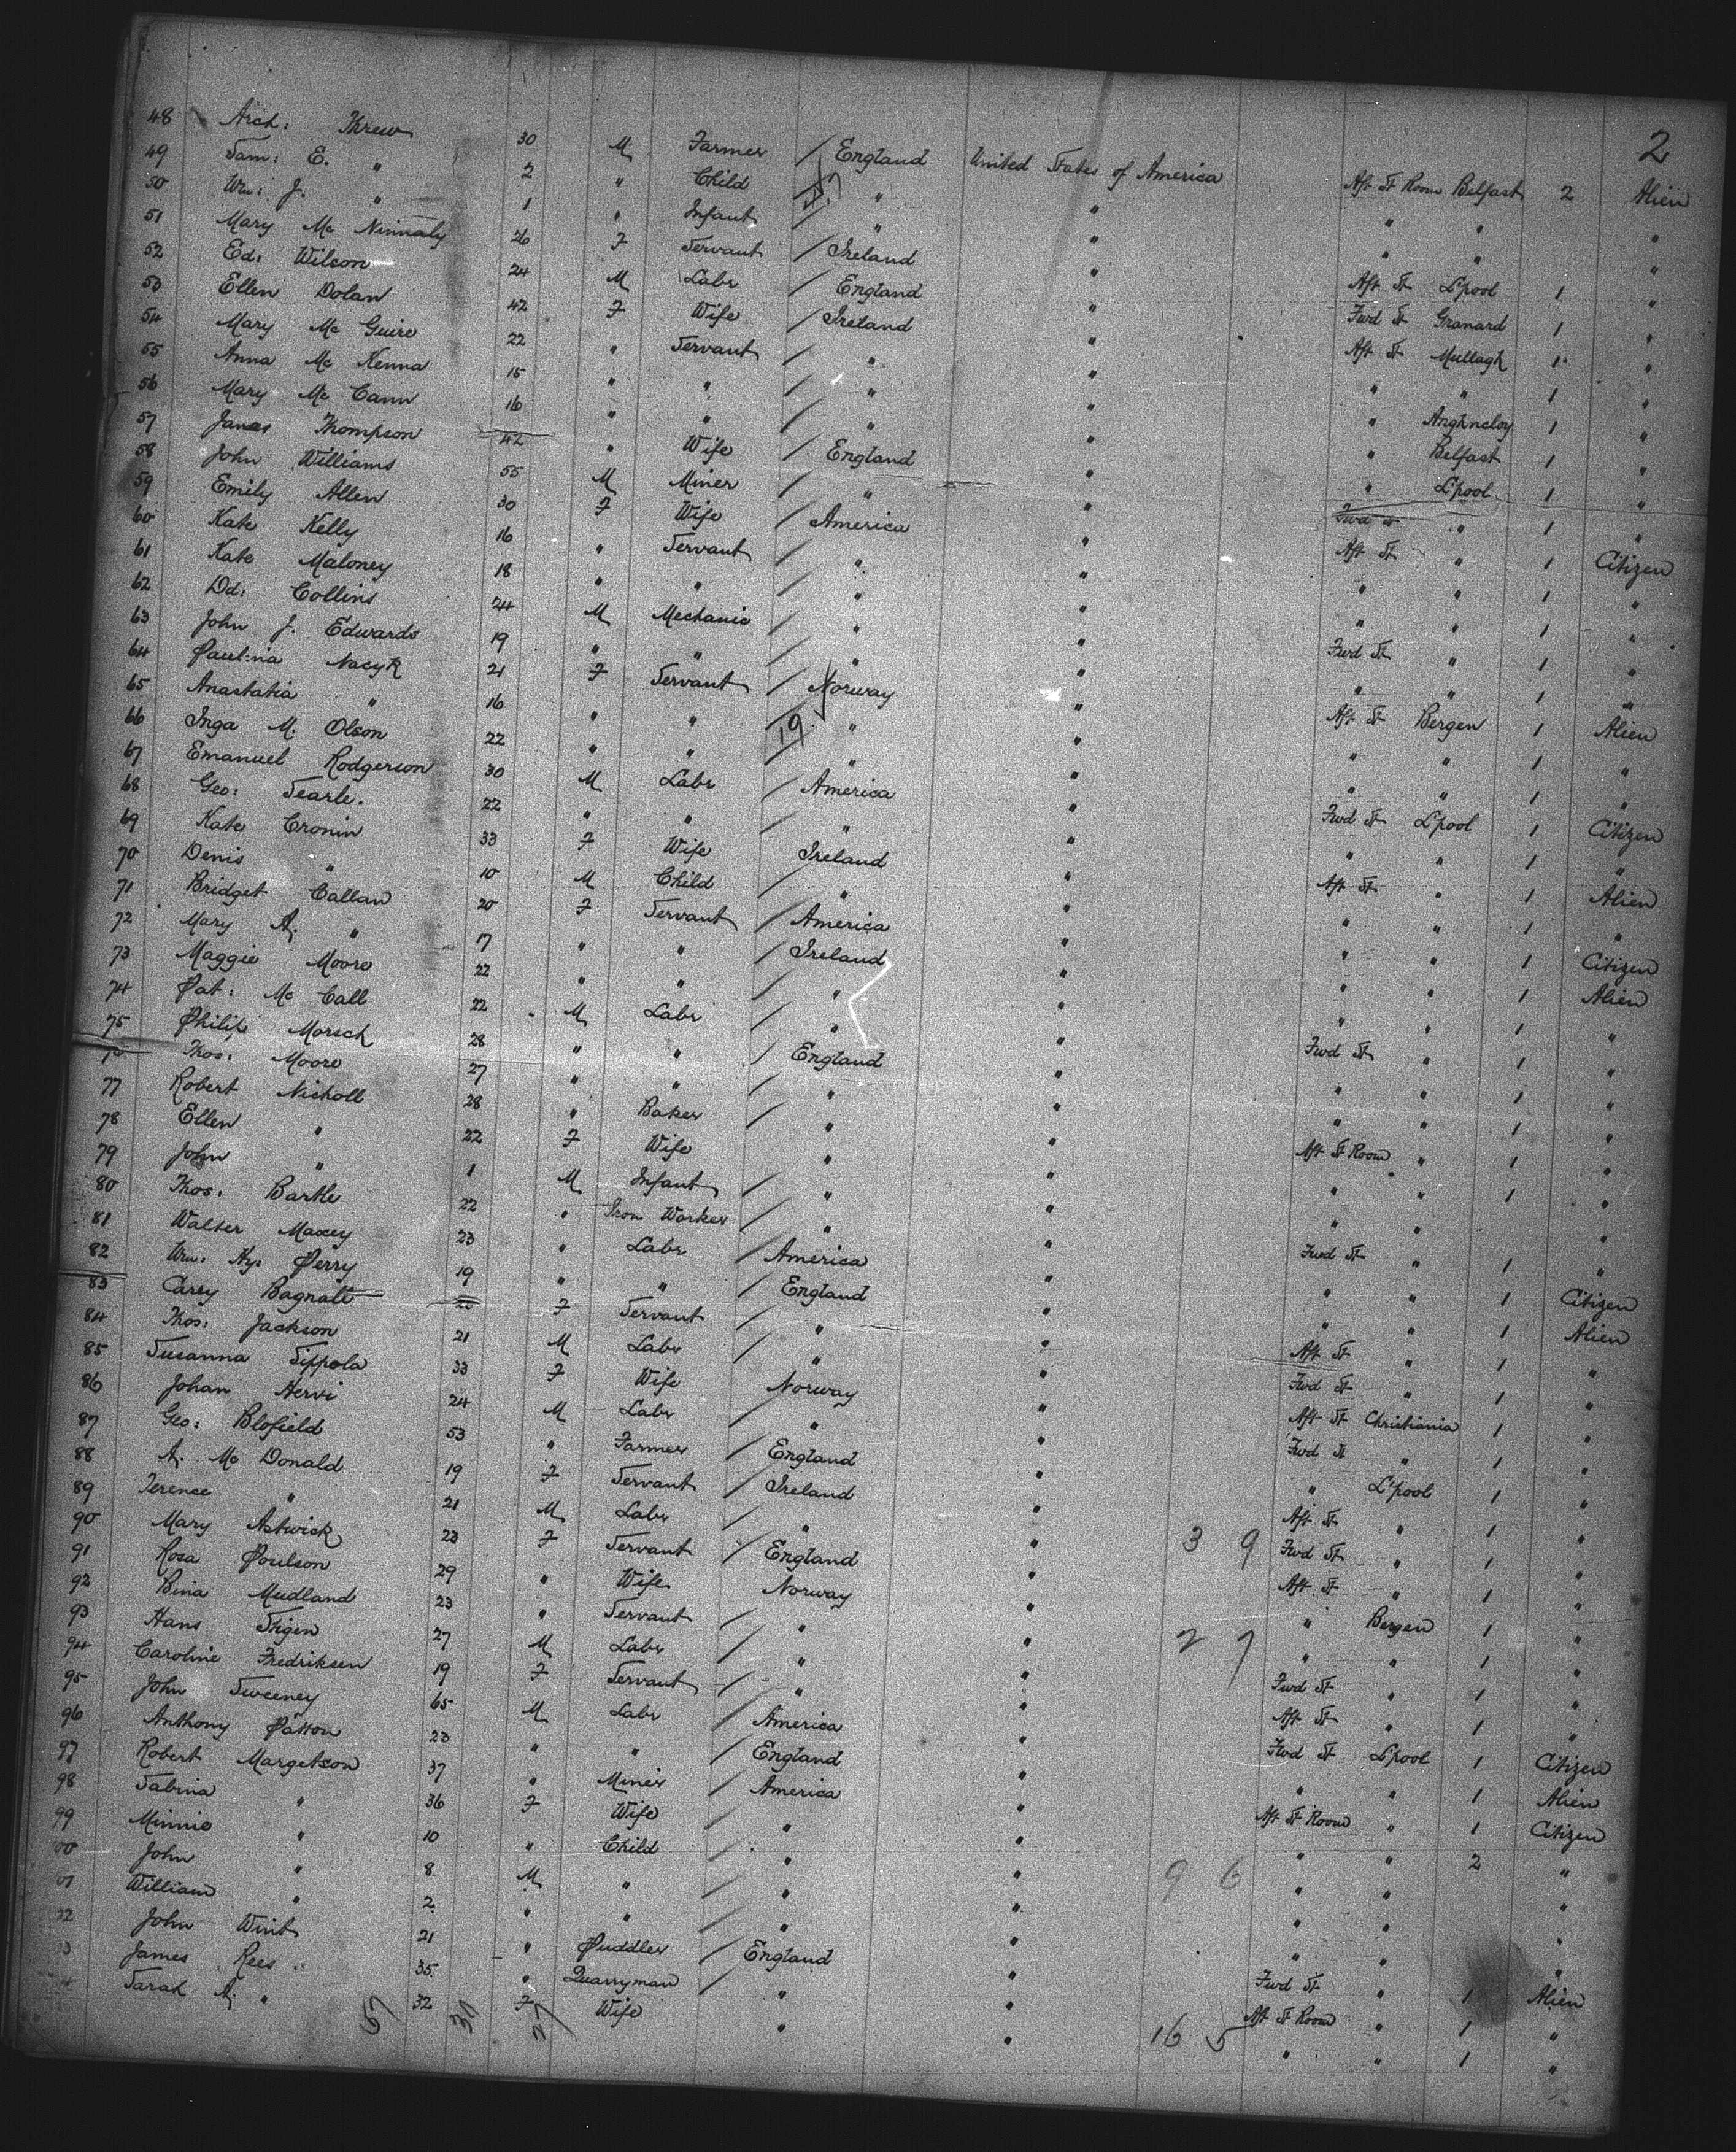 2
48 Arch: Threw 30 M Farmer / England United States of America Aft St Room Belfast 2 Alien
49 Sam: E. " 2 " Child / " " " " "
50 Wm: J. " 1 " Infant / " " " " "
51 Mary Mc Ninnaly 26 F Servant / Ireland " Aft St L'pool 1 "
52 Ed: Wilson 24 M Labr / England " Fwd St Granard 1 "
53 Ellen Dolan 42 F Wife / Ireland " Aft St Mullagh 1 "
54 Mary Mc Guire 22 " Servant / " " " " 1 "
55 Anna Mc Kenna 15 " " / " " " Anghncloy 1 "
56 Mary Mc Cann 16 " " / " " " Belfast 1 "
57 Janes Thompson 42 " Wife / England " " L'pool 1 "
58 John Williams 55 M Miner / " " Fwd St " 1 "
59 Emily Allen 30 F Wife / America " Aft St " 1 Citizen
60 Kate Kelly 16 " Servant / " " " " 1 "
61 Kate Maloney 18 " " / " " " " 1 "
62 Dd: Collins 24 M Mechanic / " " Fwd St " 1 "
63 John J. Edwards 19 " " / " " " " 1 "
64 Paulina Nacyk 21 F Servant / Norway " Aft St Bergen 1 Alien
65 Anastatia " 16 " " / 19 " " " " 1 "
66 Inga M. Olson 22 " " / " " " " 1 "
67 Emanuel Rodgerson 30 M Labr / America " Fwd St L'pool 1 Citizen
68 Geo: Searle. 22 " " / " " " " 1 "
69 Kate Cronin 33 F Wife / Ireland " Aft St " 1 Alien
70 Denis " 10 M Child / " " " " 1 "
71 Bridget Callan 20 F Servant / America " " " 1 Citizen
72 Mary A. " 17 " " / Ireland " " " 1 Alien
73 Maggie Moore 22 " " / " " " " 1 "
74 Pat: Mc Call 22 M Labr / " " Fwd St " 1 "
75 Philip Morsch 28 " " / England " " " 1 "
Thos: Moore 27 " " / " " " " 1 "
77 Robert Nicholl 28 " Baker / " " Aft St Room " 1 "
78 Ellen " 22 F Wife " " " " 1 "
79 John " 1 M Infant / " " " " "
80 Thos: Bartle 22 " Iron Worker / " " Fwd St " 1 "
81 Walter Maxey 23 " Labr / America " " " 1 Citizen
82 Wm: Hy: Perry 19 " " / England " " " 1 Alien
83 Carry Bagnall 20 F Servant / " " Aft St " 1 "
84 Thos: Jackson 21 M Labr / " " Fwd St " 1 "
85 Susanna Sippola 33 F Wife Norway " Aft St Christiania 1 "
86 Johan Hervi 24 M Labr / " " Fwd St " 1 "
87 Geo: Blofield 53 " Farmer / England " " L'pool 1 "
88 A. Mc Donald 19 F Servant / Ireland " Aft St " 1 "
89 Terence " 21 M Labr / " " 3 9 Fwd St " 1 "
90 Mary Astwick 23 F Servant / England " Aft St " 1 "
91 Rosa Poulson 29 " Wife Norway " " Bergen 1 "
92 Bina Mudland 23 " Servant / " " 2 7 " " 1 "
93 Hans Stigen 27 M Labr / " " Fwd St " 1 "
94 Caroline Fredriksen 19 F Servant / " " Aft St " 1 "
95 John Sweeney 65 M Labr / America " Fwd St L'pool 1 Citizen
96 Anthony Patton 23 " " / England " " " 1 Alien
97 Robert Margetson 37 " Miner / America " Aft St Room " 1 Citizen
98 Sabina " 36 F Wife / " " " " 2 "
99 Minnie " 10 " Child / " " 9 6 " " "
John " 8 M " / " " " " "
William " 2 " " / " " " " "
John Wint 21 " Puddler / England " Fwd St " 1 Alien
James Rees 35 " Quarryman / " " Aft St Room " 1 "
Sarah A. " 32 F Wife " " 16 5 " " 1 "
57 30 27